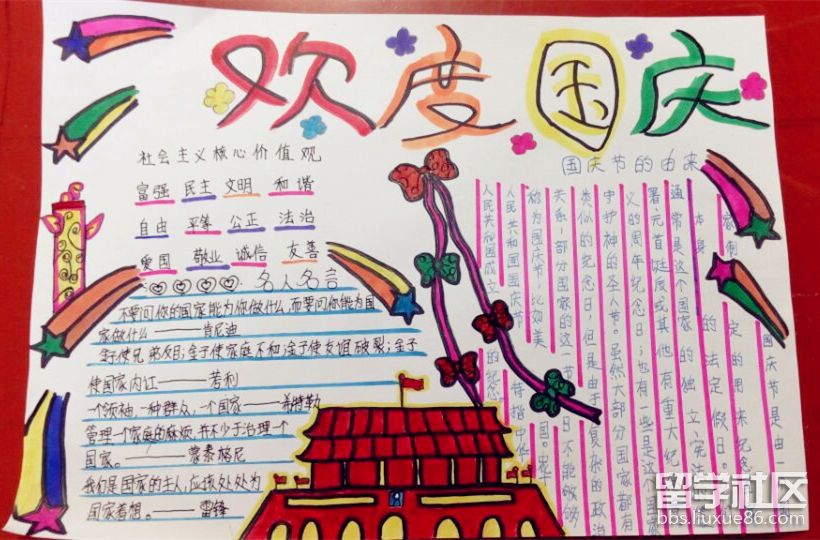 欢度国庆
社会主义核心价值观
富强 民主 文明 和谐
自由 平等 公正 法治
爱国 敬业 诚信 友善
名人名言
不要问你的国家能为你做什么,而要问你能为国
家做什么——肯尼迪
金子使兄弟反目;金子使家庭不和;金子使友谊破裂;金子
使国家内讧——考利
一个领袖,一种群众,一个国家——希特勒
管理一个家庭的麻烦,并不少于治理一个
国家。——蒙泰格尼
我们是国家的主人,应该处处为
国家着想。——雷锋
国庆节的由来
国庆节是由
家制定的用来纪念
本身的法定假日。
通常是这个国家的独立、宪法
署、元首诞辰或其他有重大纪
义的周年纪念日;也有一些是这个国家
守护神的圣人节。虽然大部分国家都有
类似的纪念日,但是由于复杂的政治
关系,一部分国家的这一节日不能够
称为国庆节,比如美国。中华
人民共和国国庆节特指中华
人民共和国成立的纪念
留学社区
bbs.liuxue86.com